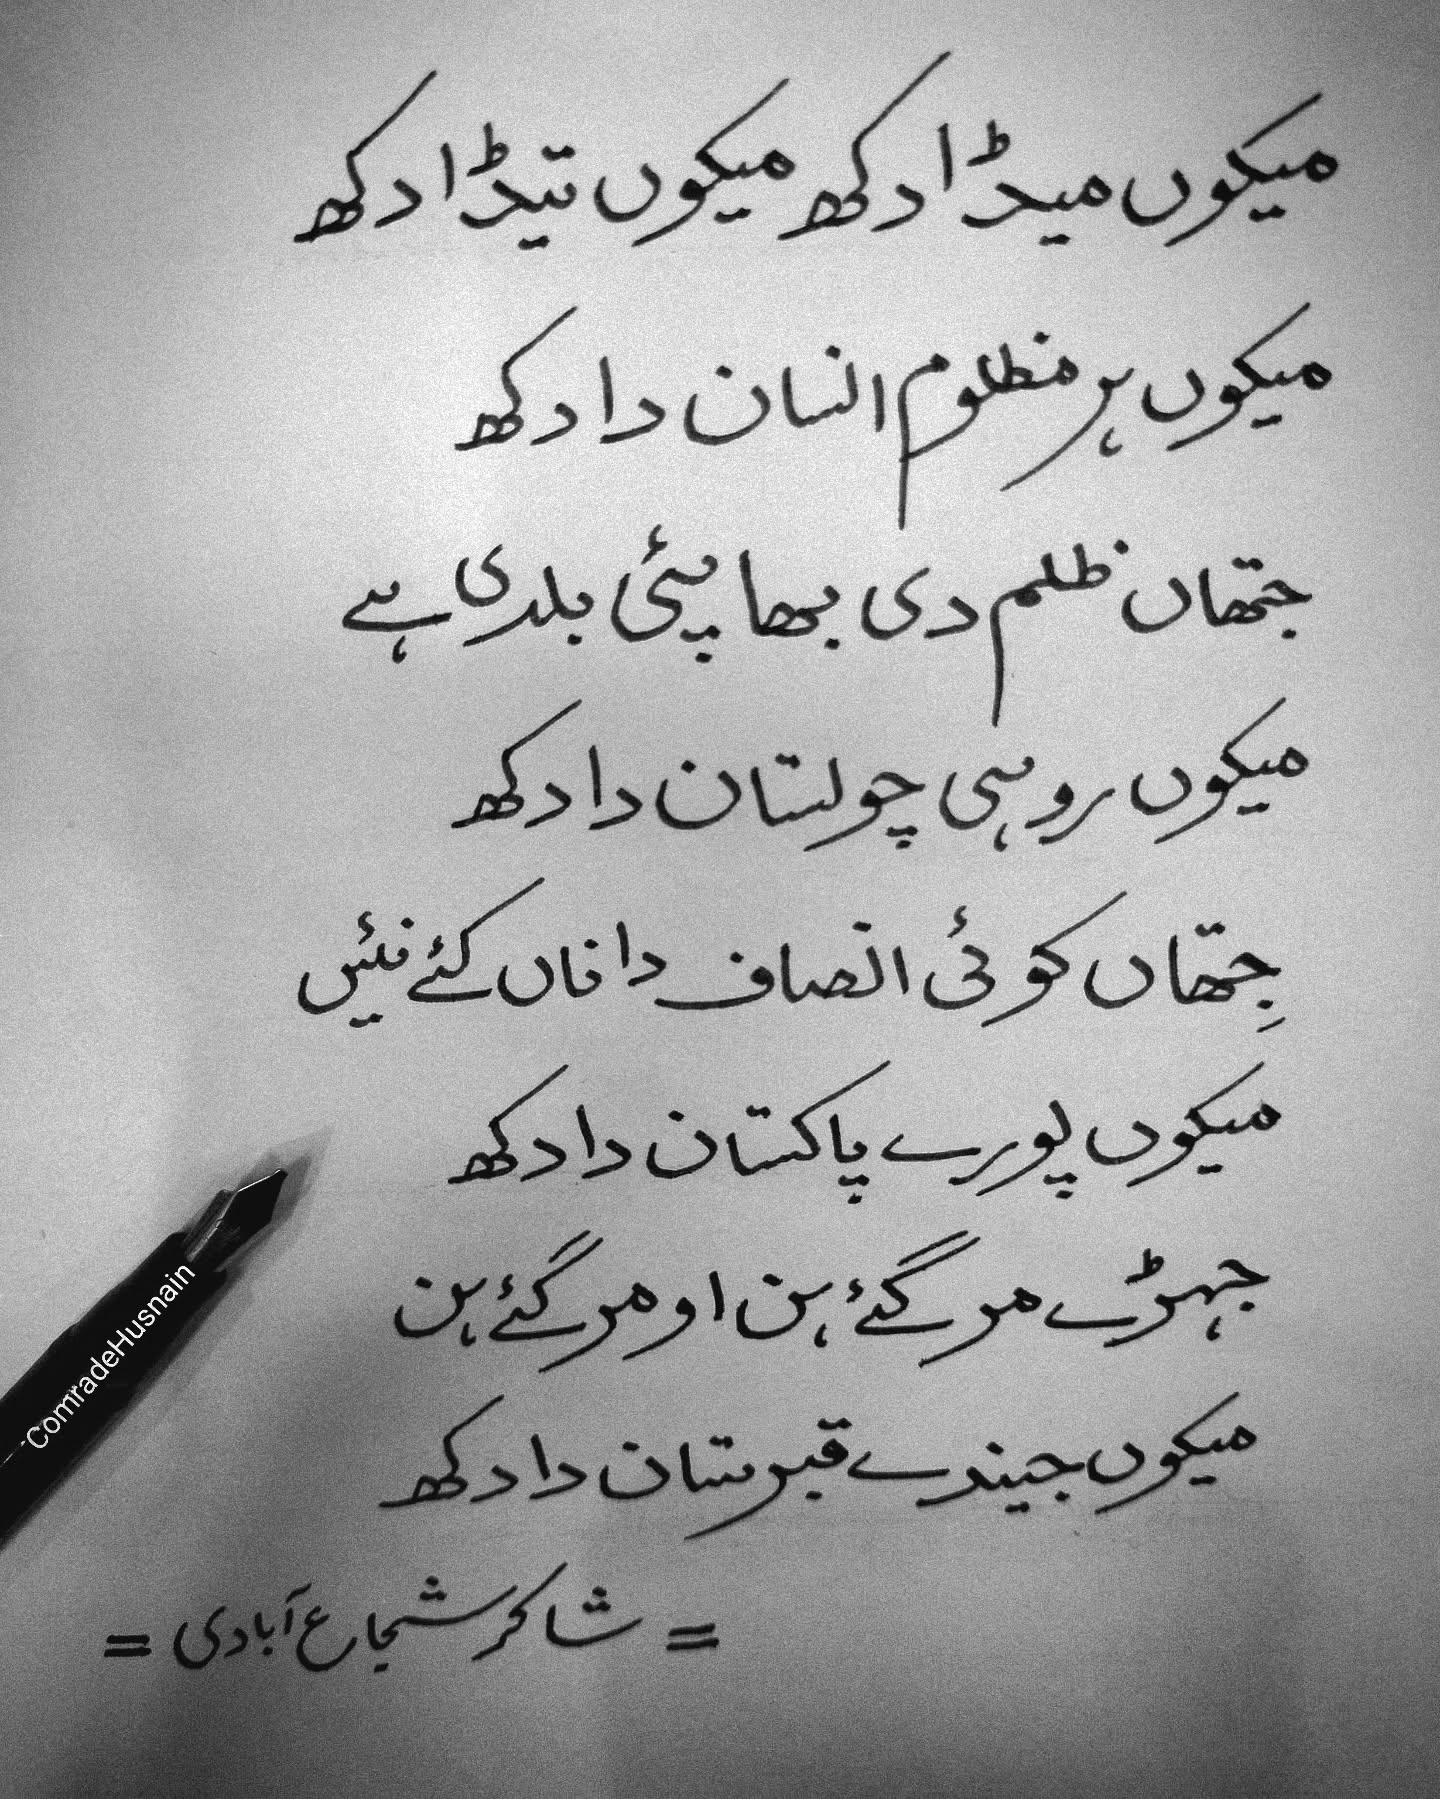 میکوں میڈا دکھ میکوں تیڈا دکھ
میکوں ہر مظلوم انسان دا دکھ
جتھاں ظلم دی بھا پئی بلدی ہے
میکوں روہی چولستان دا دکھ
جِتھاں کوئی انصاف دا ناں کئے نئیں
میکوں پورے پاکستان دا دکھ
جہڑے مر گئے ہن او مر گئے ہن
میکوں جیندے قبرستان دا دکھ
= شاکر شجاع آبادی =
ComradeHusnain